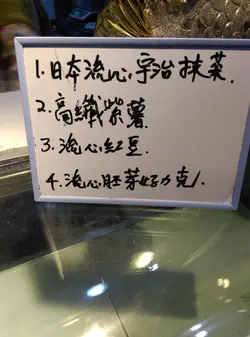 1.日本流心宇治抹茶.
2.高纖紫薯.
3.流心紅豆.
4.流心胚芽巧力克.